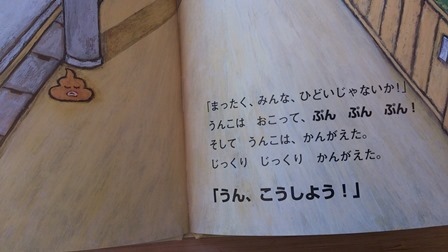 「まったく、みんな、ひどいじゃないか!」
うんこは　おこって、ぷん　ぷん　ぷん!
そして　うんこは、かんがえた。
じっくり　じっくり　かんがえた。
「うん、こうしよう!」